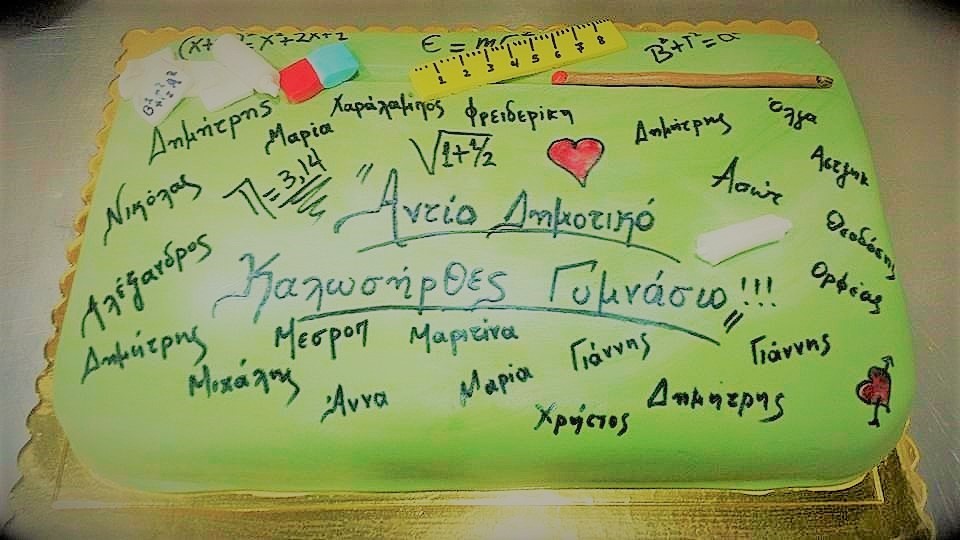 (x+1)²=x²+2x+1
E = mc²
1 2 3 4 5 6 7 8
B²+Γ²=α²
Δημήτρης
Μαρία
Χαράλαμπος
Φρειδερίκη
Δημήτρης
Όλγα
Νικόλας
Π=3,14
√1+1/2
Ασώτ
Αστγικ
"Αντίο Δημοτικό
Θεοδόσης
Αλέξανδρος
Καλωσήρθες Γυμνάσιο!!!"
Ορφέας
Δημήτρης
Μεσροπ
Μαριτίνα
Γιάννης
Γιάννης
Μιχάλης
Άννα
Μαρία
Χρήστος
Δημήτρης